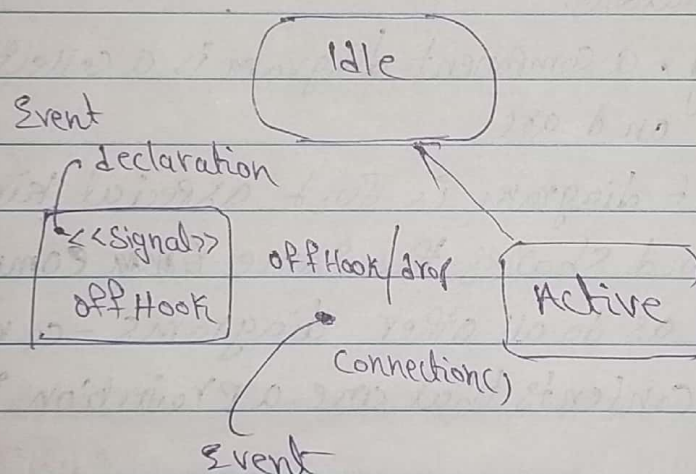 Idle
Event
declaration
<<Signal>>
off Hook
offHook/drop
Connection()
Active
Event